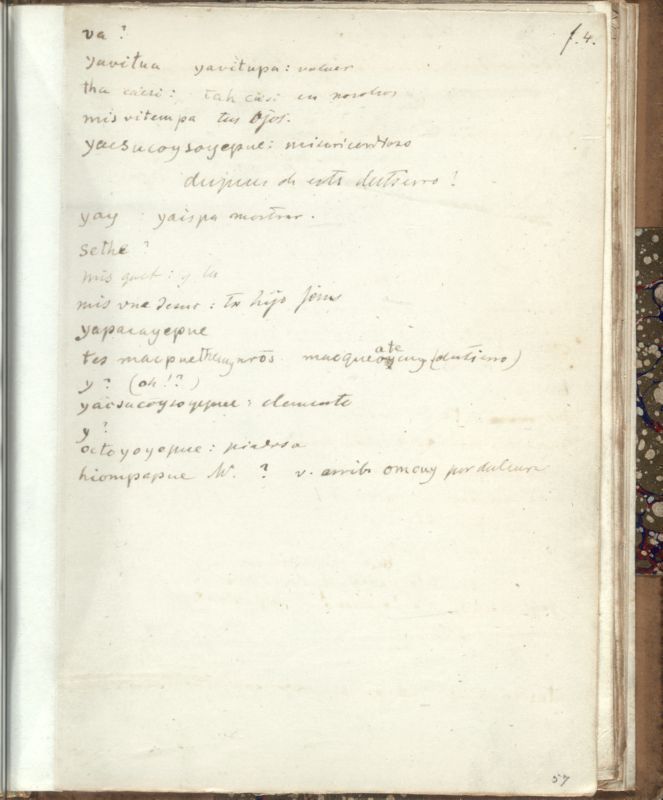 f. 4.
va ?
yavitua yavitupa : volver
tha caesi : tah casi en nosotros
mis vitempa tus ojos.
yaesucoysoyepue : misericordioso
despues de este destierro ?
yay : yaispa mostrar.
sethe ?
mis quet : y tu
mis vne Jesus : tu hijo Jesus
yaparayepue
tes macpuethecuynrōs. macqueoycuy (destierro)
ate
y ? (oh !?)
yaesucoysoyepue : clemente
y ?
octoyoyepue : piadosa
hiompapue M. ? v. arriba omcuy por dulzura
57